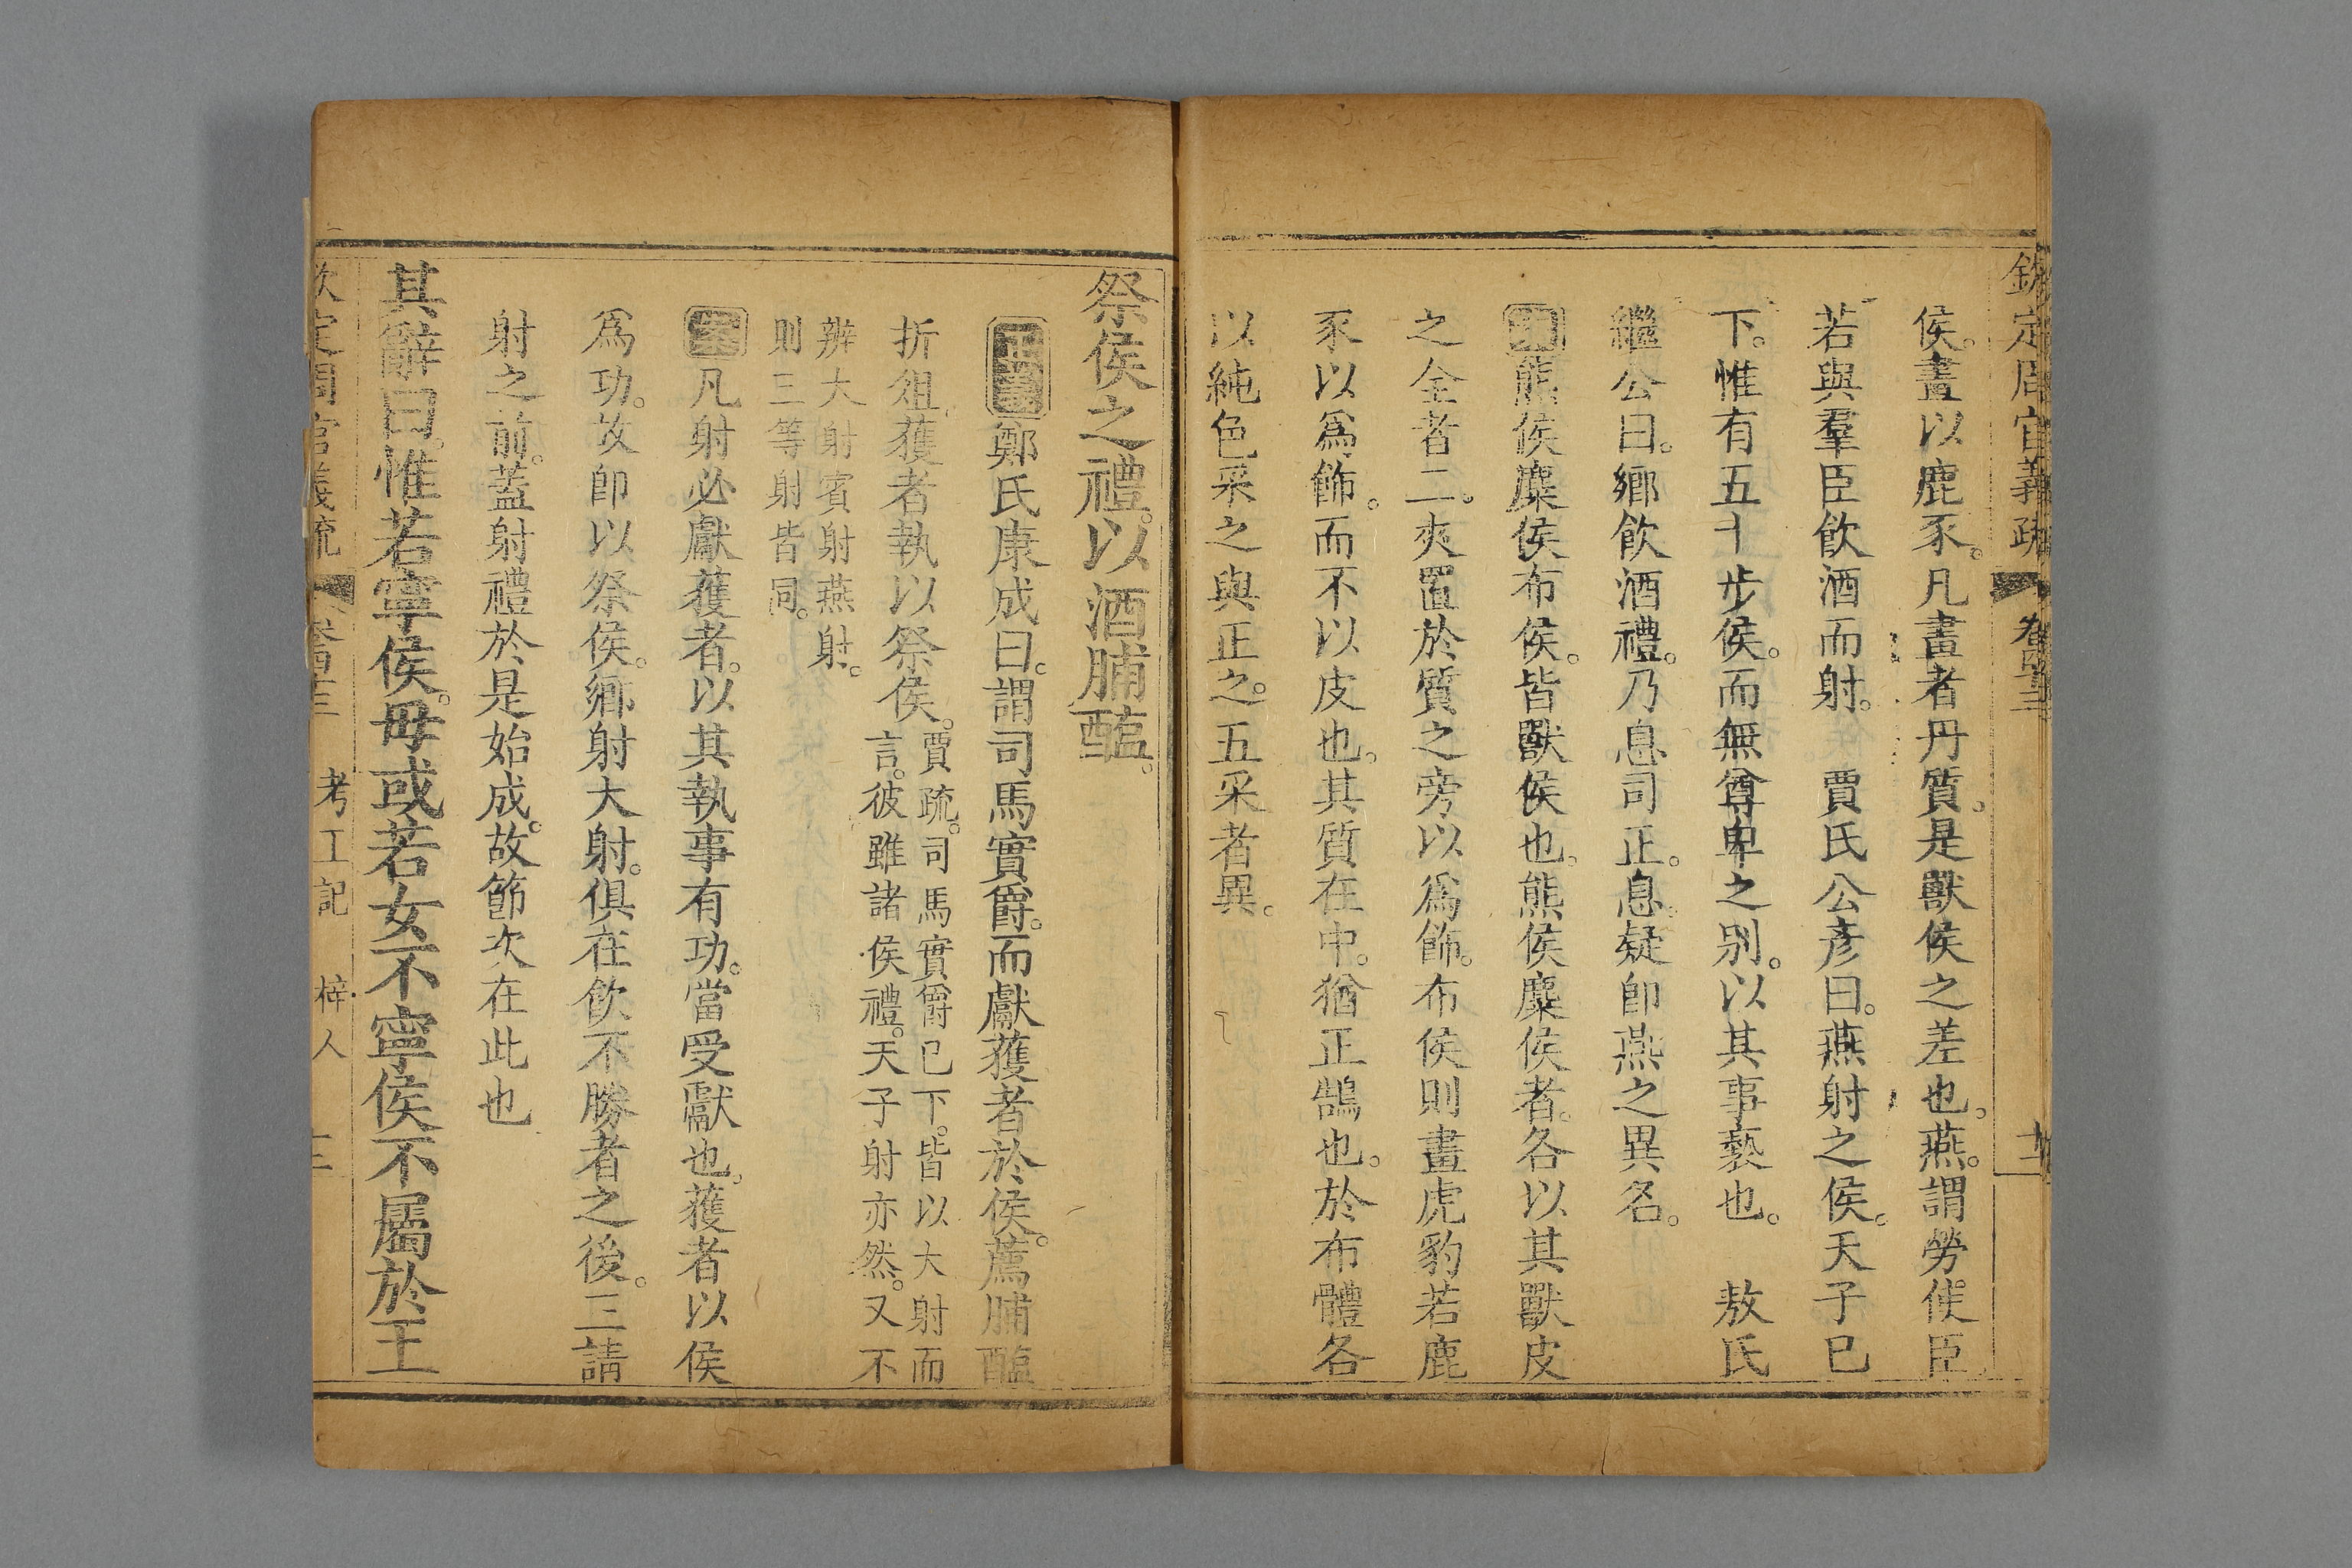 欽定周官義疏 卷四十三 十二
侯。畫以鹿豕。凡畫者丹質。是獸侯之差也。燕。謂勞使臣
若與羣臣飲酒而射。 賈氏公彥曰。燕射之侯。天子已
下。惟有五十步侯。而無尊卑之別。以其事褻也。 敖氏
繼公曰。鄉飲酒禮。乃息司正。息。疑卽燕之異名。
熊侯麋侯布侯。皆獸侯也。熊侯麋侯者。各以其獸皮
之全者二。夾置於質之旁以爲飾。布侯則畫虎豹若鹿
豕以爲飾。而不以皮也。其質在中。猶正鵠也。於布體各
以純色采之與正之。五采者異。
祭侯之禮。以酒脯醢。
正義鄭氏康成曰。謂司馬實爵。而獻獲者於侯。薦脯醢
折俎獲者執以祭侯。賈疏。司馬實爵已下。皆以大射而
言。彼雖諸侯禮。天子射亦然。又不
辨大射賓射燕射。
則三等射皆同。
案凡射必獻獲者。以其執事有功。當受獻也。獲者以侯
爲功。故卽以祭侯。鄉射大射。俱在飲不勝者之後。三請
射之前。蓋射禮於是始成。故節次在此也
其辭曰。惟若寧侯。毋或若女不寧侯不屬於王
欽定周官義疏 卷四十三 考工記 梓人 十三